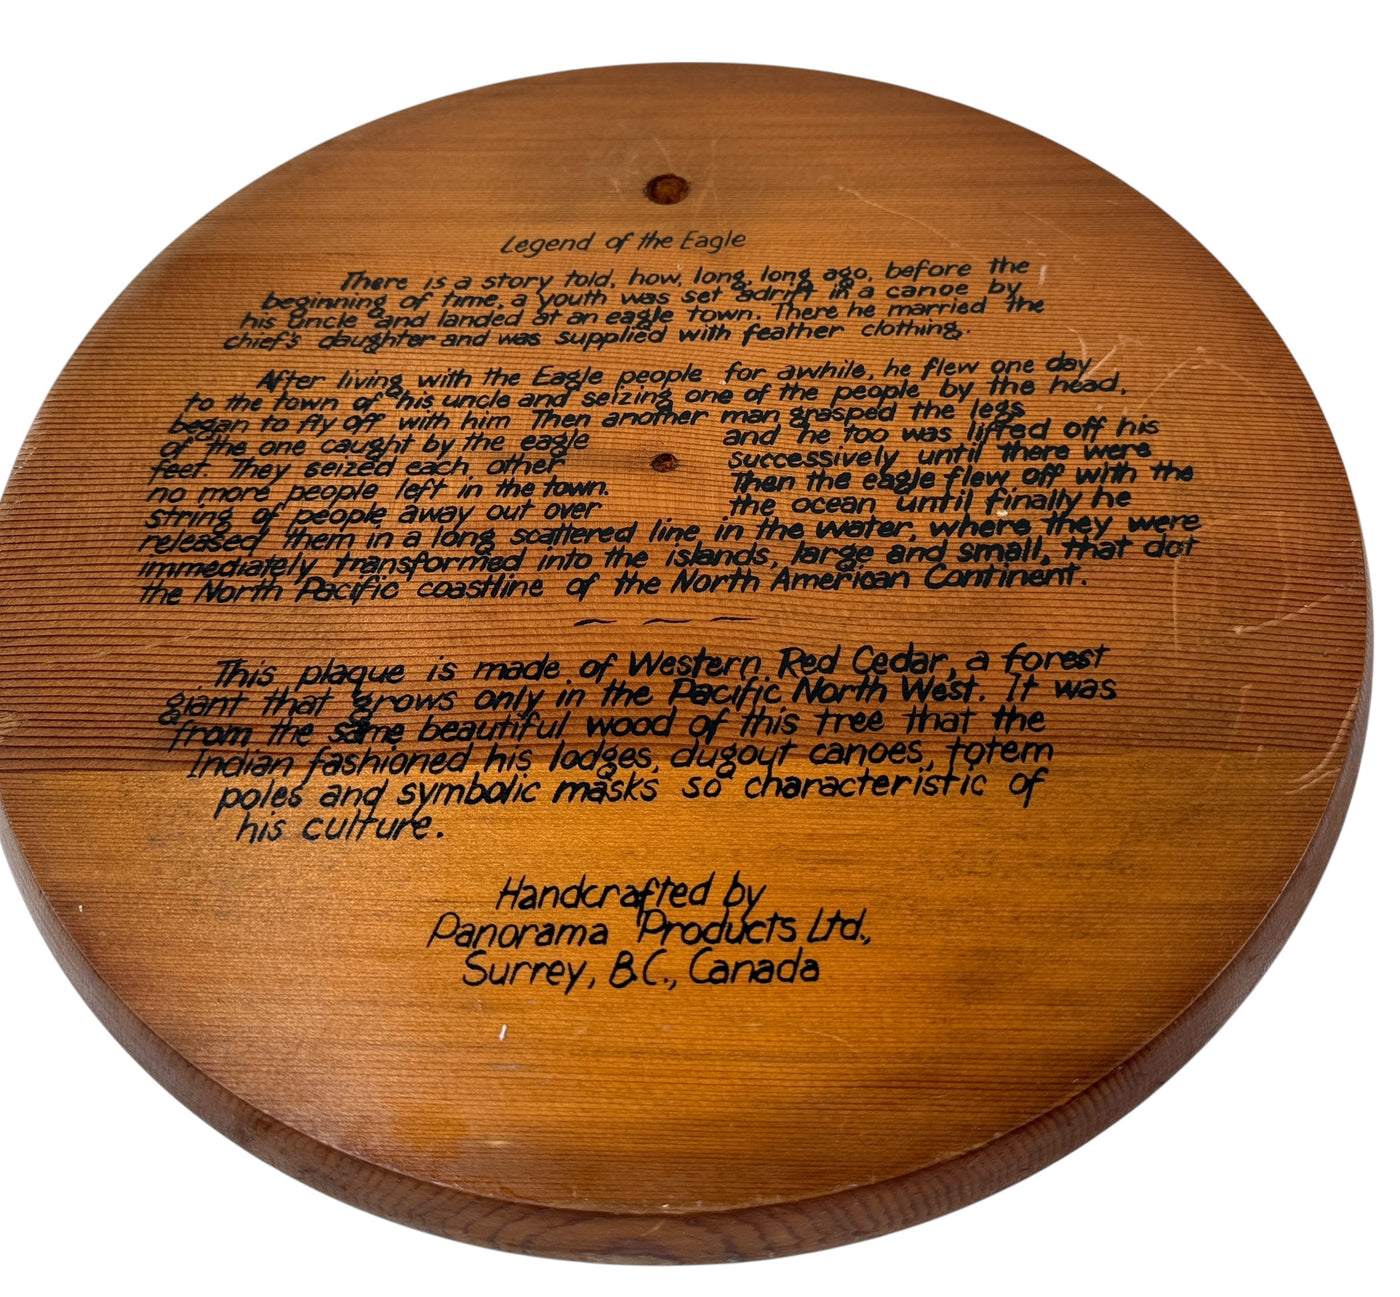 Legend of the Eagle
There is a story told, how, long, long ago, before the
beginning of time, a youth was set adrift in a canoe by
his uncle and landed at an eagle town. There he married the
chief's daughter and was supplied with feather clothing.
After living with the Eagle people for awhile, he flew one day
to the town of his uncle and seizing one of the people by the head,
began to fly off with him Then another man grasped the legs
of the one caught by the eagle and he too was lifted off his
feet. They seized each other successively until there were
no more people left in the town. Then the eagle flew off with the
string of people away out over the ocean until finally he
released them in a long scattered line in the water, where they were
immediately transformed into the islands, large and small, that dot
the North Pacific coastline of the North American Continent.
This plaque is made of Western Red Cedar, a forest
giant that grows only in the Pacific North West. It was
from the same beautiful wood of this tree that the
Indian fashioned his lodges, dugout canoes, totem
poles and symbolic masks so characteristic of
his culture.
Handcrafted by
Panorama Products Ltd.,
Surrey, B.C., Canada